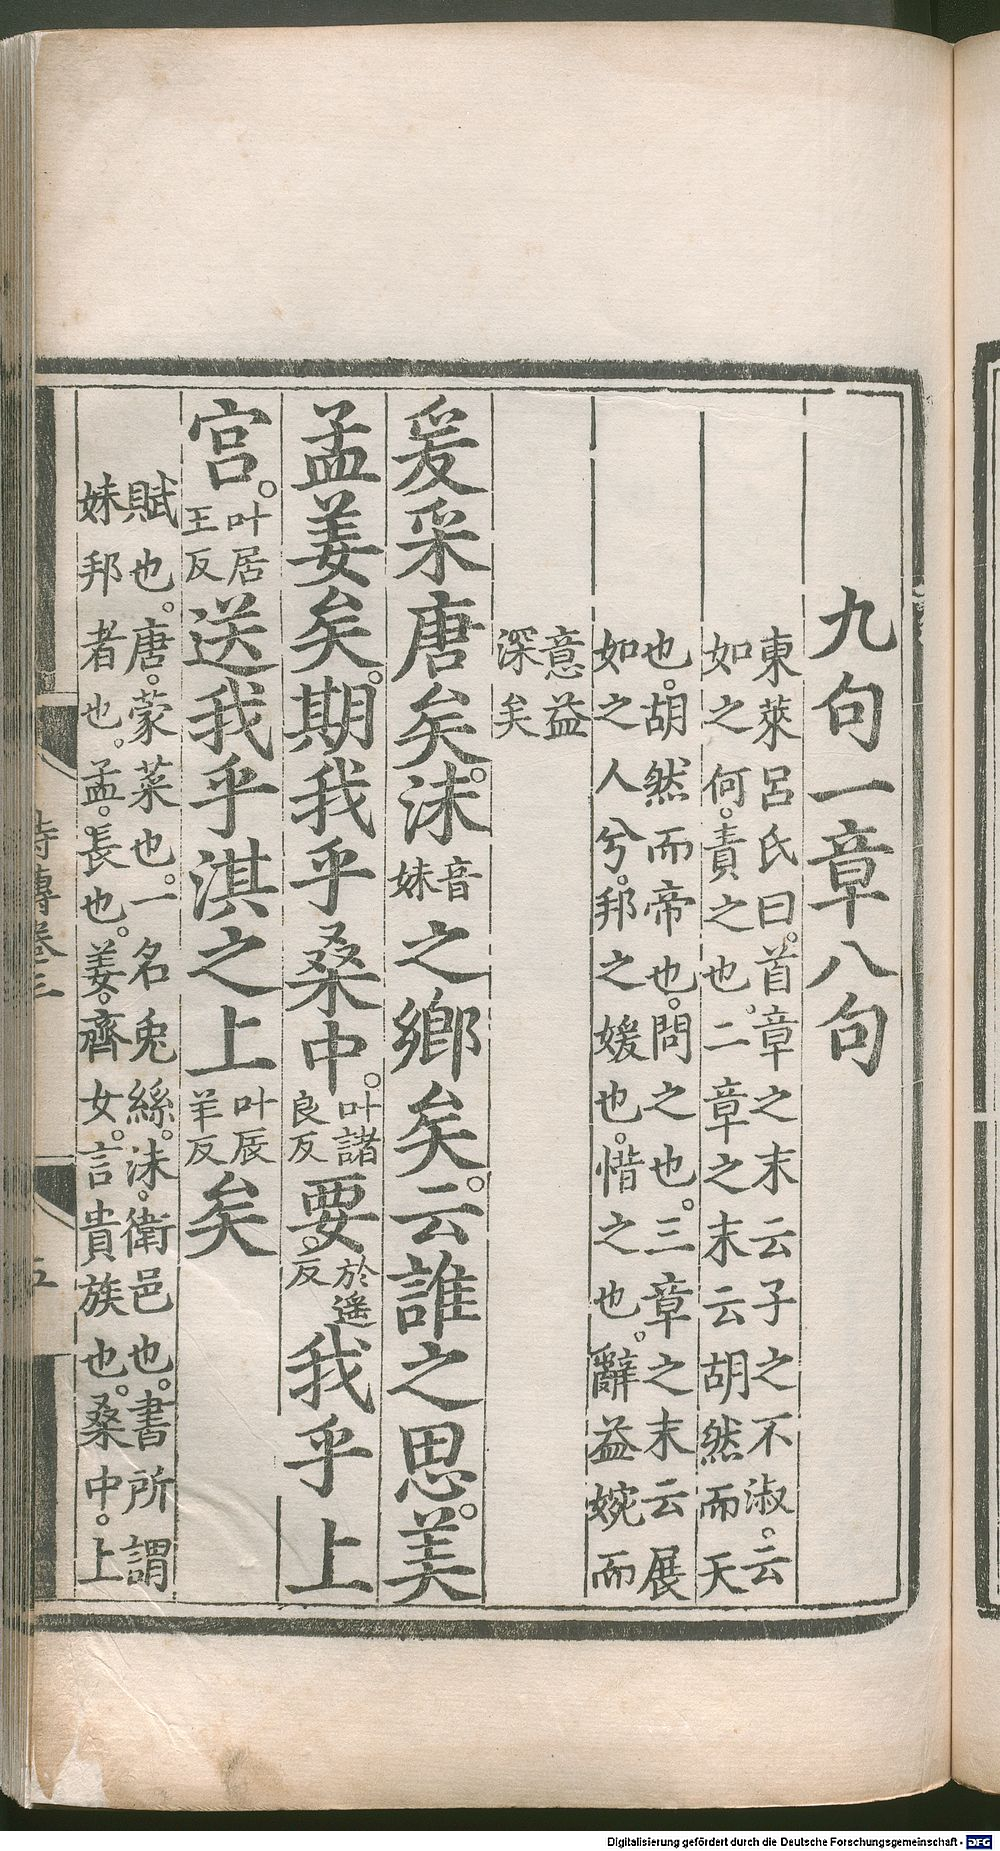 九句一章八句
東萊呂氏曰。首章之末云子之不淑。云
如之何。責之也。二章之末云胡然而天
也。胡然而帝也。問之也。三章之末云展
如之人兮。邦之媛也。惜之也。辭益婉而
意益
深矣
爰采唐矣。沬音妹之鄉矣。云誰之思。美
孟姜矣。期我乎桑中。叶諸良反要。於遥反我乎上
宮。叶居王反送我乎淇之上叶辰羊反矣
賦也。唐。蒙菜也。一名兎絲。沬。衛邑也。書所謂
妹邦者也。孟。長也。姜。齊女。言貴族也。桑中。上
詩傳卷三
五
Digitalisierung gefördert durch die Deutsche Forschungsgemeinschaft - DFG